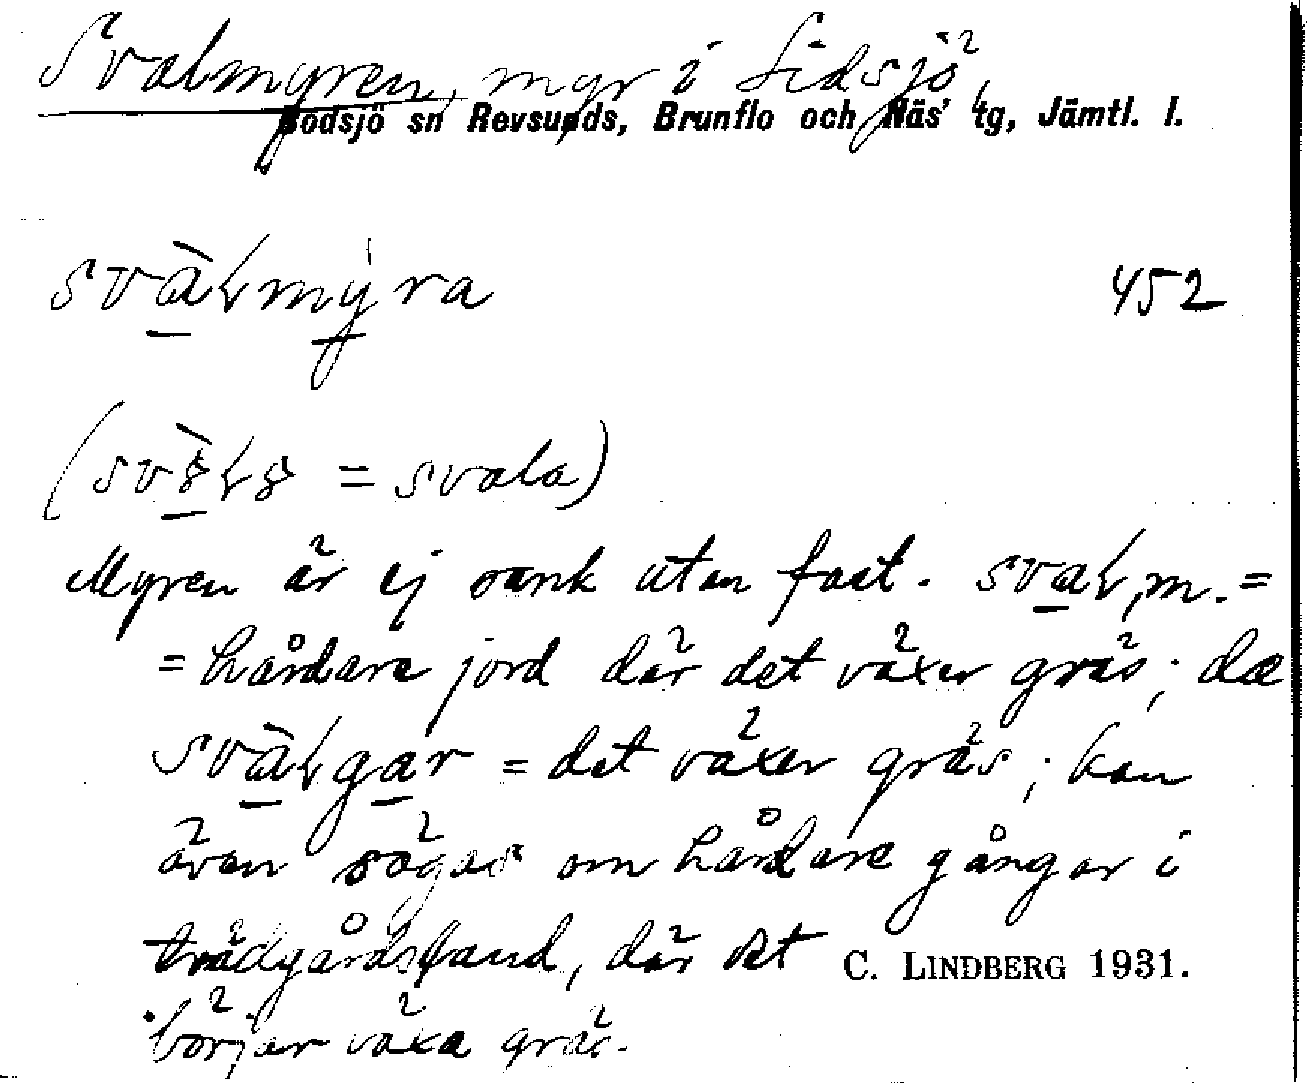 Svalmyren, myr i Sidsjö,
Bodsjö sn Revsunds, Brunflo och Näs' tg, Jämtl. l.
svàɽmýra 452
(svàɽa = svala)
Myren är ej sank utan fast. svaɽ, m. =
= hårdare jord där det växer gräs; dæ
svàɽgar = det växer gräs; kan
även sägas om hårdare gångar i
trädgårdsland, där det
C. LINDBERG 1931.
börjar växa gräs.